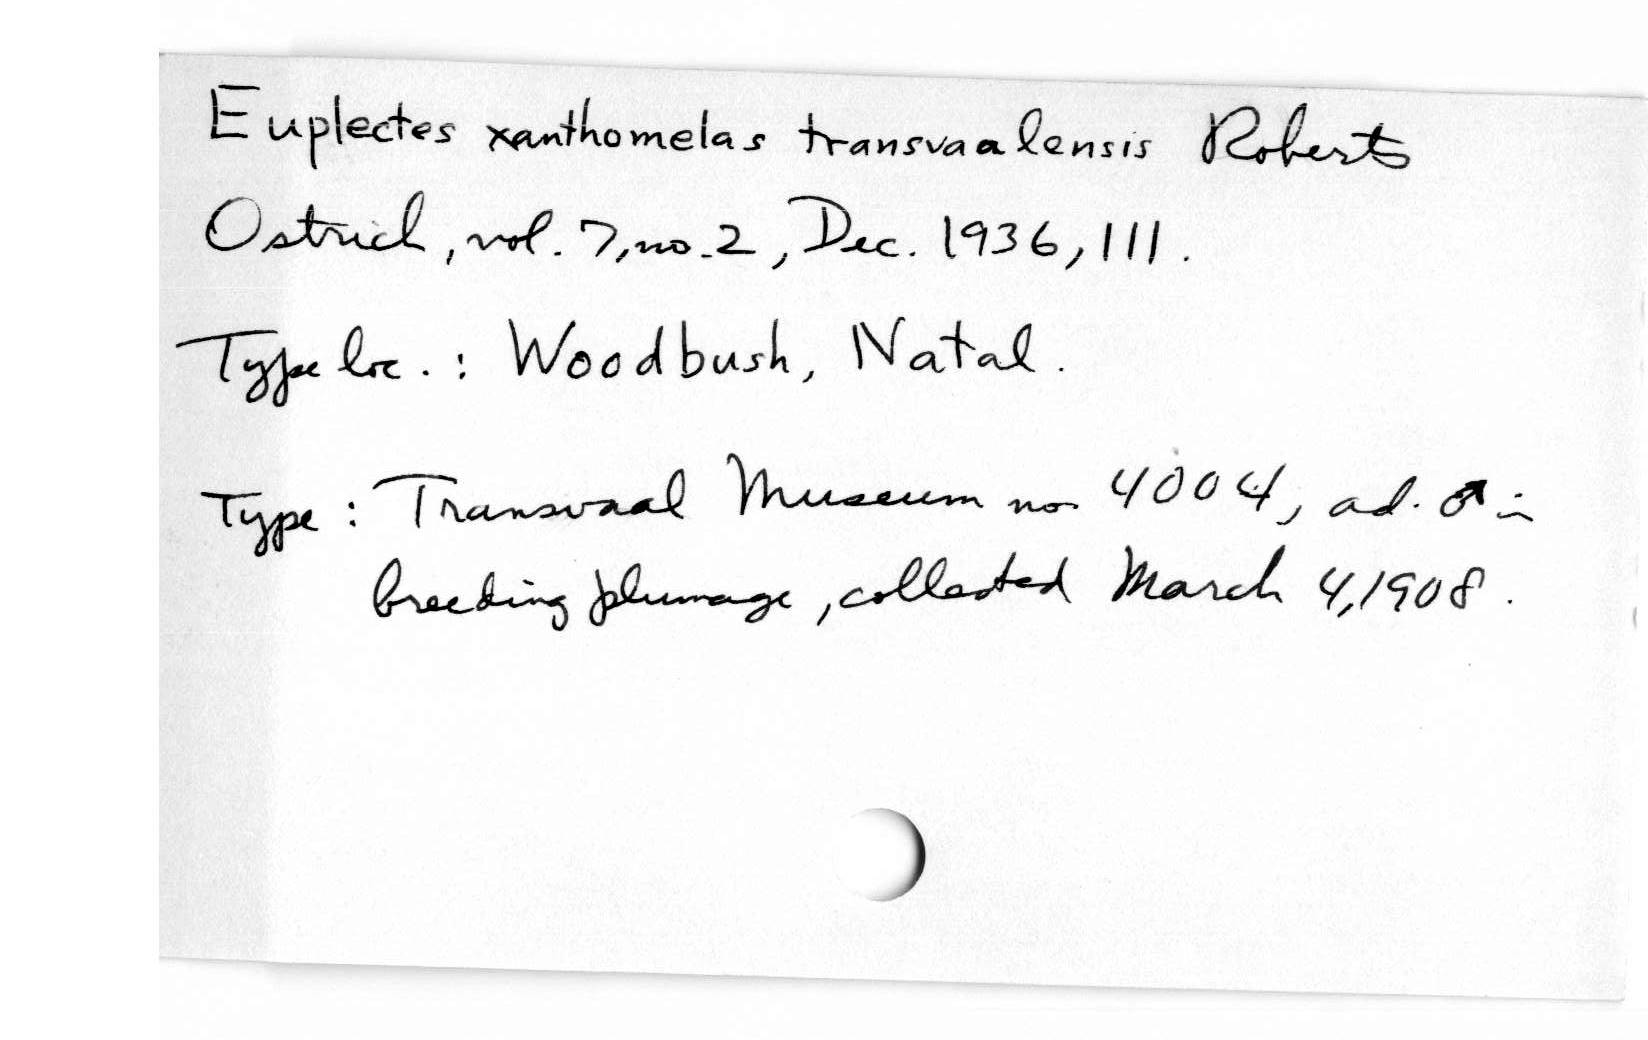 Euplectes xanthomelas transvaalensis Roberts
Ostrich, vol. 7, no. 2, Dec. 1936, 111.
Type loc. : Woodbush, Natal.
Type : Transvaal Museum no. 4004, ad. ♂ in
breeding plumage, collected March 4, 1908.